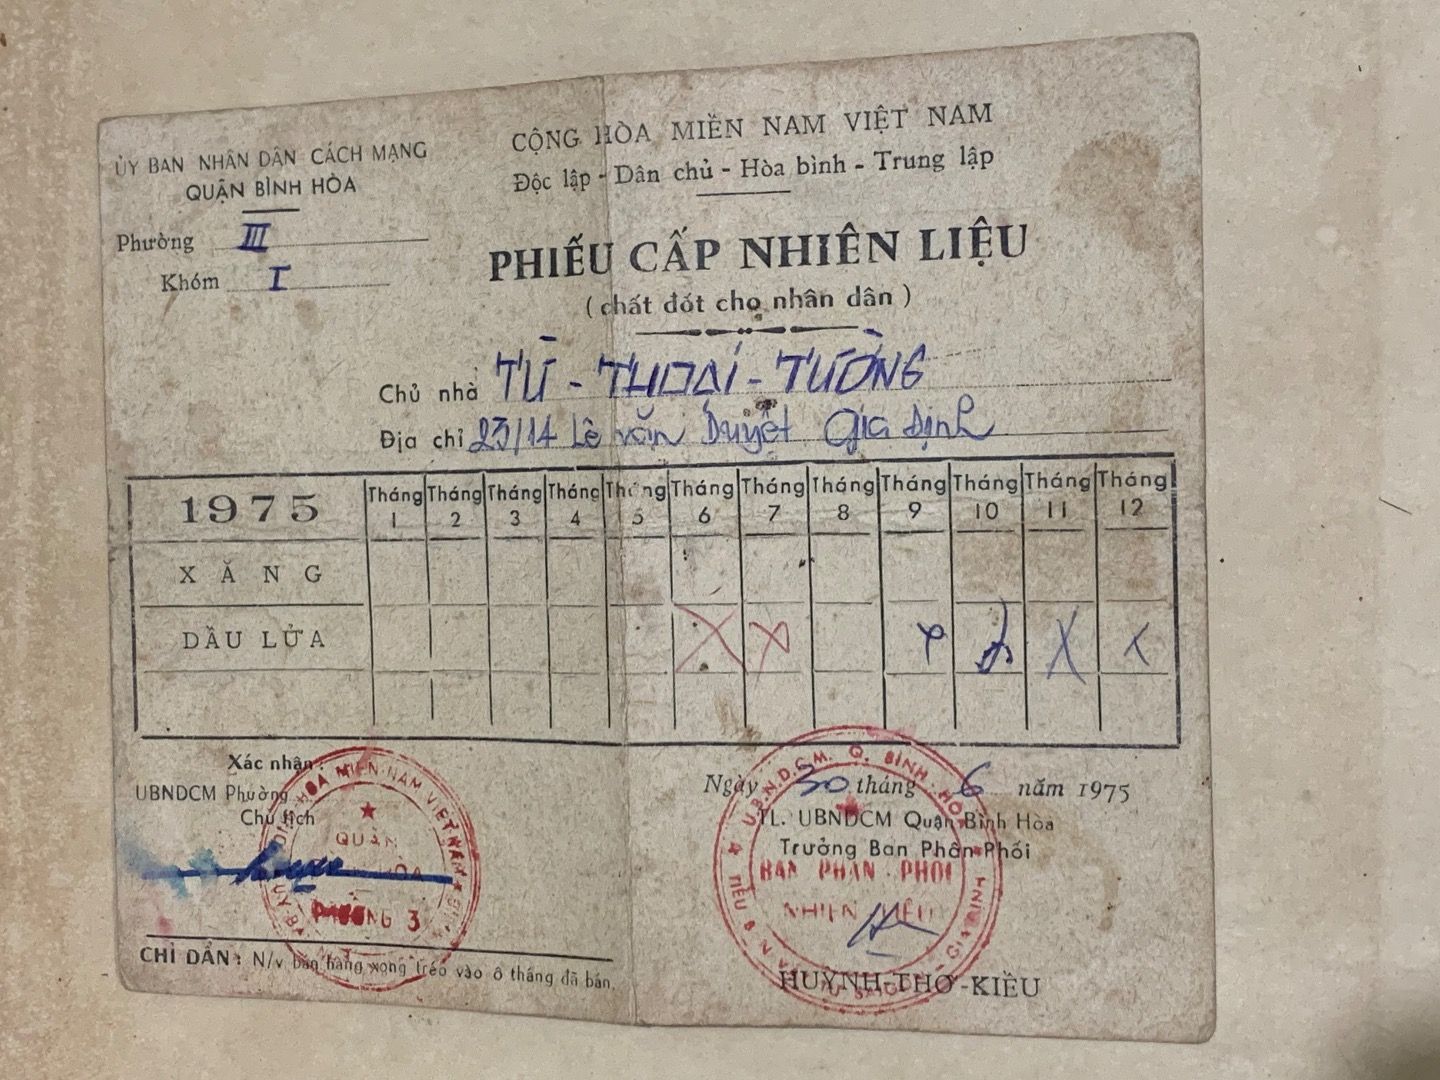 ỦY BAN NHÂN DÂN CÁCH MẠNG
QUẬN BÌNH HÒA
Phường III
Khóm I
CỘNG HÒA MIỀN NAM VIỆT NAM
Độc lập - Dân chủ - Hòa bình - Trung lập
PHIẾU CẤP NHIÊN LIỆU
( chất đốt cho nhân dân )
Chủ nhà TỪ - THOẠI - TƯỜNG
Địa chỉ 23/14 Lê Văn Duyệt Gia Định
1975 Tháng 1 Tháng 2 Tháng 3 Tháng 4 Tháng 5 Tháng 6 Tháng 7 Tháng 8 Tháng 9 Tháng 10 Tháng 11 Tháng 12
XĂNG
DẦU LỬA X X X
Xác nhận :
UBNDCM Phường
Chủ tịch
HÒA MIỀN NAM VIỆT NAM
QUẬN
PHƯỜNG 3
CHỈ DẪN : N/v bán hàng xong tréo vào ô tháng đã bán.
Ngày 30 tháng 6 năm 1975
TL. UBNDCM Quận Bình Hòa
Trưởng Ban Phân Phối
U.B.N.D.C.M. Q. BÌNH HÒA
BAN PHÂN PHỐI
NHIÊN LIỆU
HUỲNH-THỚ-KIỀU